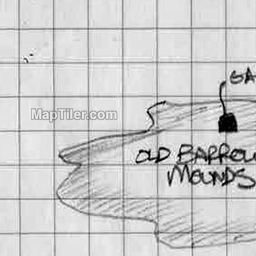 MapTiler.com
OLD BARROW
MOUNDS